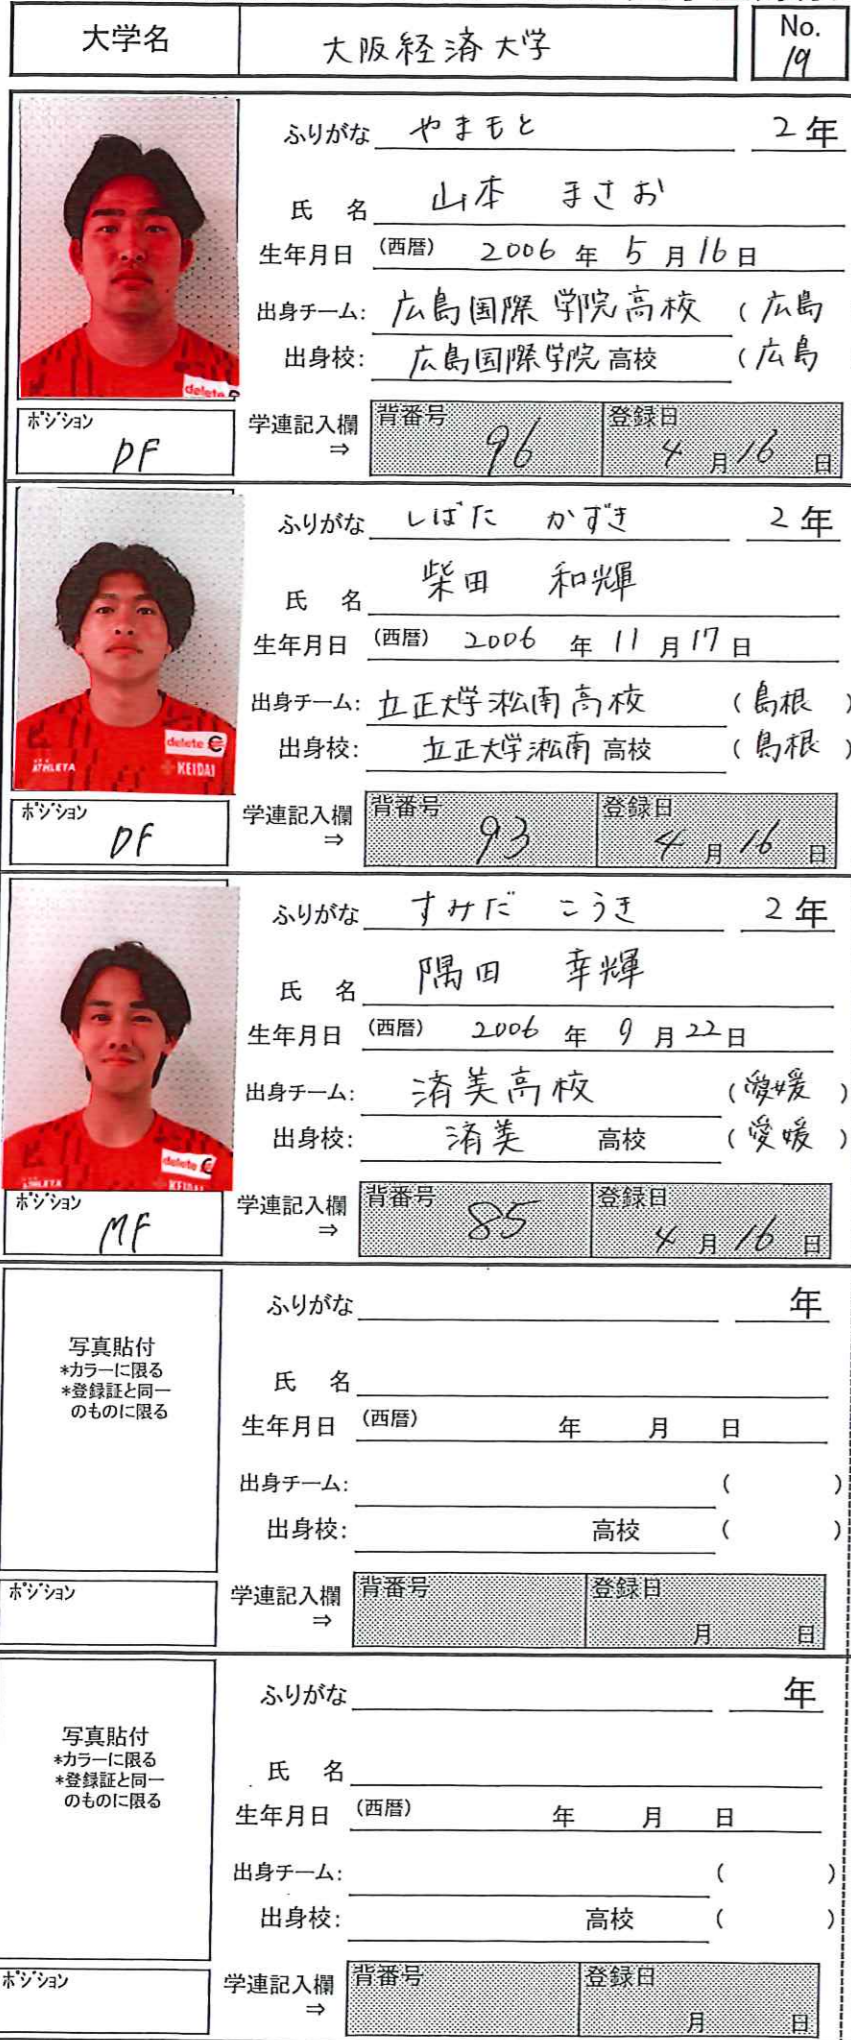 大学名 大阪経済大学 No. 19
ふりがな やまもと 2年
氏 名 山本 まさお
生年月日 (西暦) 2006 年 5 月 16 日
出身チーム: 広島国際学院高校 (広島
出身校: 広島国際学院 高校 (広島
delete
ポジション DF 学連記入欄 ⇒ 背番号 96 登録日 4 月 16 日
ふりがな しばた かずき 2年
氏 名 柴田 和輝
生年月日 (西暦) 2006 年 11 月 17 日
出身チーム: 立正大学淞南高校 (島根 )
出身校: 立正大学淞南 高校 (島根 )
delete C
ATHLETA KEIDAI
ポジション DF 学連記入欄 ⇒ 背番号 93 登録日 4 月 16 日
ふりがな すみだ こうき 2年
氏 名 隅田 幸輝
生年月日 (西暦) 2006 年 9 月 22 日
出身チーム: 済美高校 (愛媛 )
出身校: 済美 高校 (愛媛 )
delete C
ATHLETA KEIDAI
ポジション MF 学連記入欄 ⇒ 背番号 85 登録日 4 月 16 日
ふりがな 年
写真貼付
*カラーに限る
*登録証と同一
のものに限る
氏 名
生年月日 (西暦) 年 月 日
出身チーム: ( )
出身校: 高校 ( )
ポジション 学連記入欄 ⇒ 背番号 登録日 月 日
ふりがな 年
写真貼付
*カラーに限る
*登録証と同一
のものに限る
氏 名
生年月日 (西暦) 年 月 日
出身チーム: ( )
出身校: 高校 ( )
ポジション 学連記入欄 ⇒ 背番号 登録日 月 日